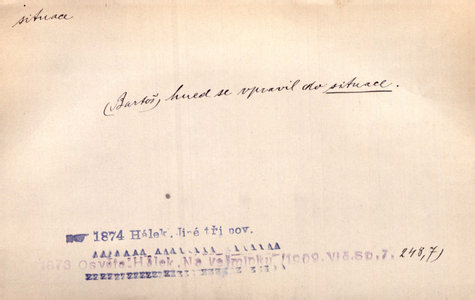 situace
(Bartoš) hned se vpravil do situace.
1874 Hálek. Jiné tři pov.
1873 Osvěta. Hálek. Na vejminku (1909. Vlč. Sp. 7, 248,7)